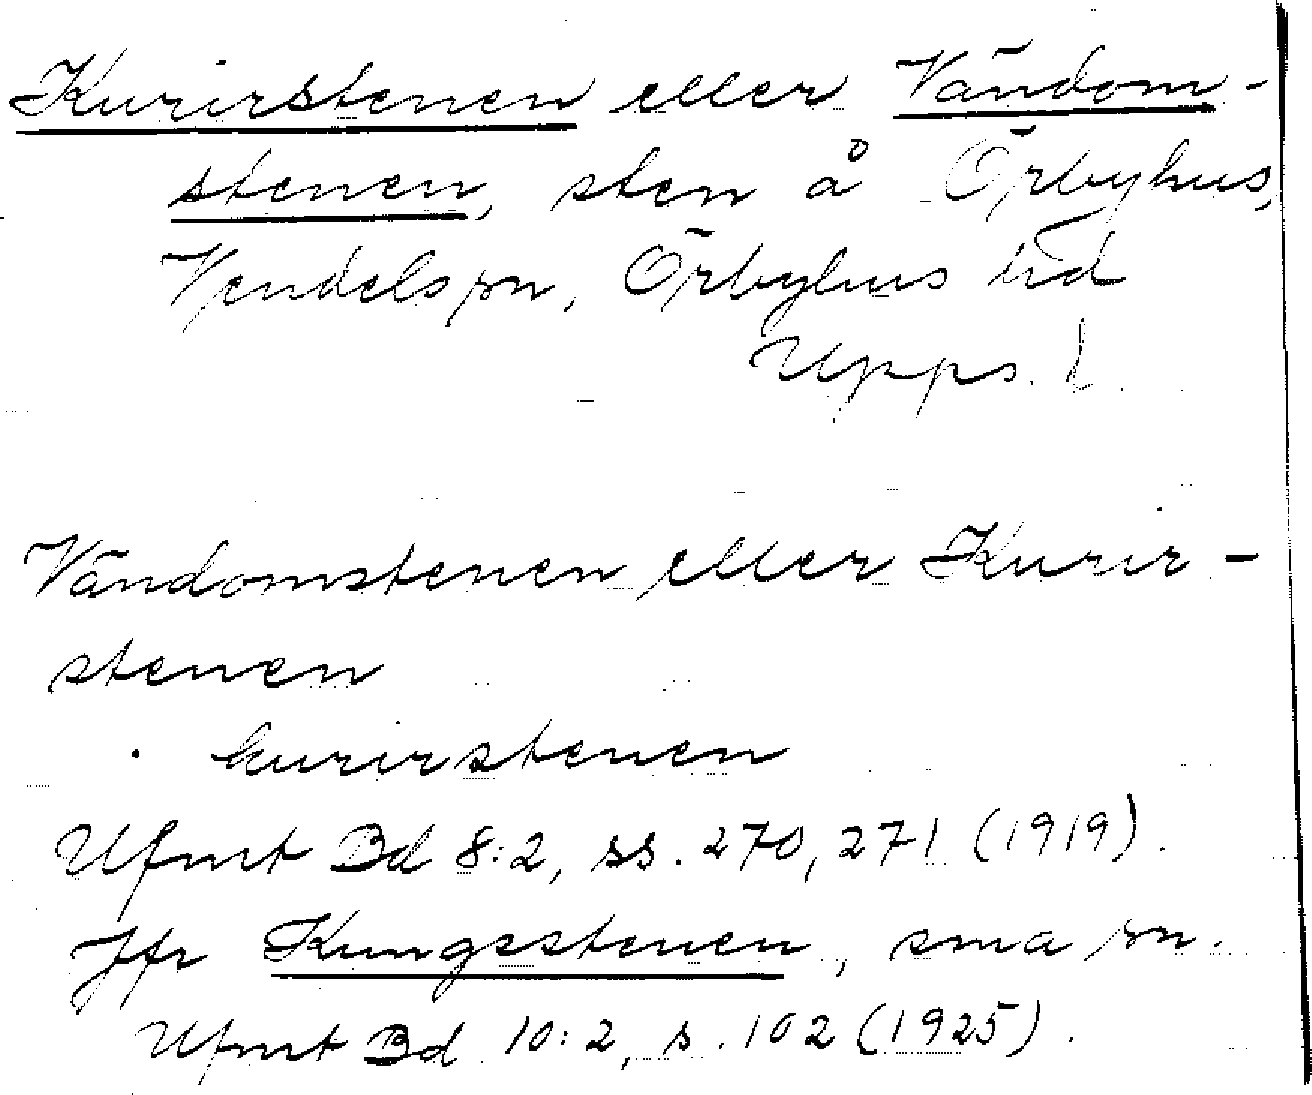 Kurirstenen eller Vändom-
stenen, sten å Örbyhus,
Vendels sn, Örbyhus hd
Upps. l.
Vändomstenen eller Kurir-
stenen
kurirstenen
Ufmt Bd 8:2, ss. 270, 271 (1919).
Jfr Kungsstenen, sma sn.
Ufmt Bd 10:2, s. 102 (1925).